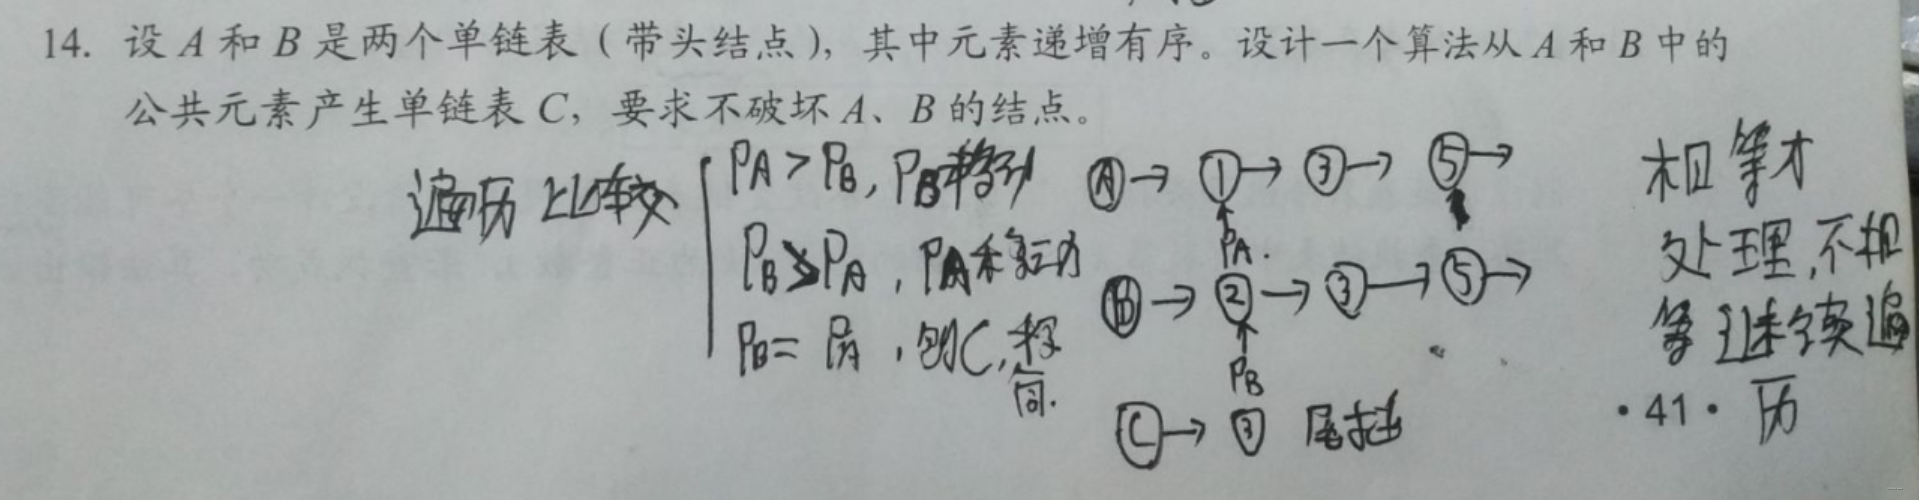 14. 设 A 和 B 是两个单链表（带头结点），其中元素递增有序。设计一个算法从 A 和 B 中的
公共元素产生单链表 C，要求不破坏 A、B 的结点。
遍历 比较
PA > PB, PB移动
PB > PA, PA移动
PB = PA, 创C, 移
A → 1 → 3 → 5 →
PA.
B → 2 → 3 → 5 →
PB
C → 3 尾插
相等才
处理,不相
等继续遍
历
·41·